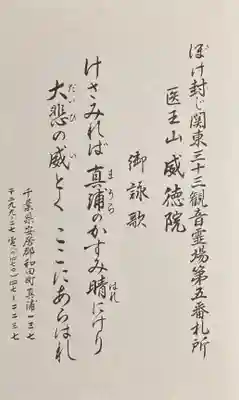 ぼけ封じ関東三十三観音霊場第五番札所
医王山威徳院
御詠歌
けさみれば真浦のかすみ晴にけり
まうら
はれ
大悲の威とくここにあらはれ
だいひ
い
千葉県安房郡和田町真浦一三七
〒二九九-二七 電(〇四七〇)四七-二二三七